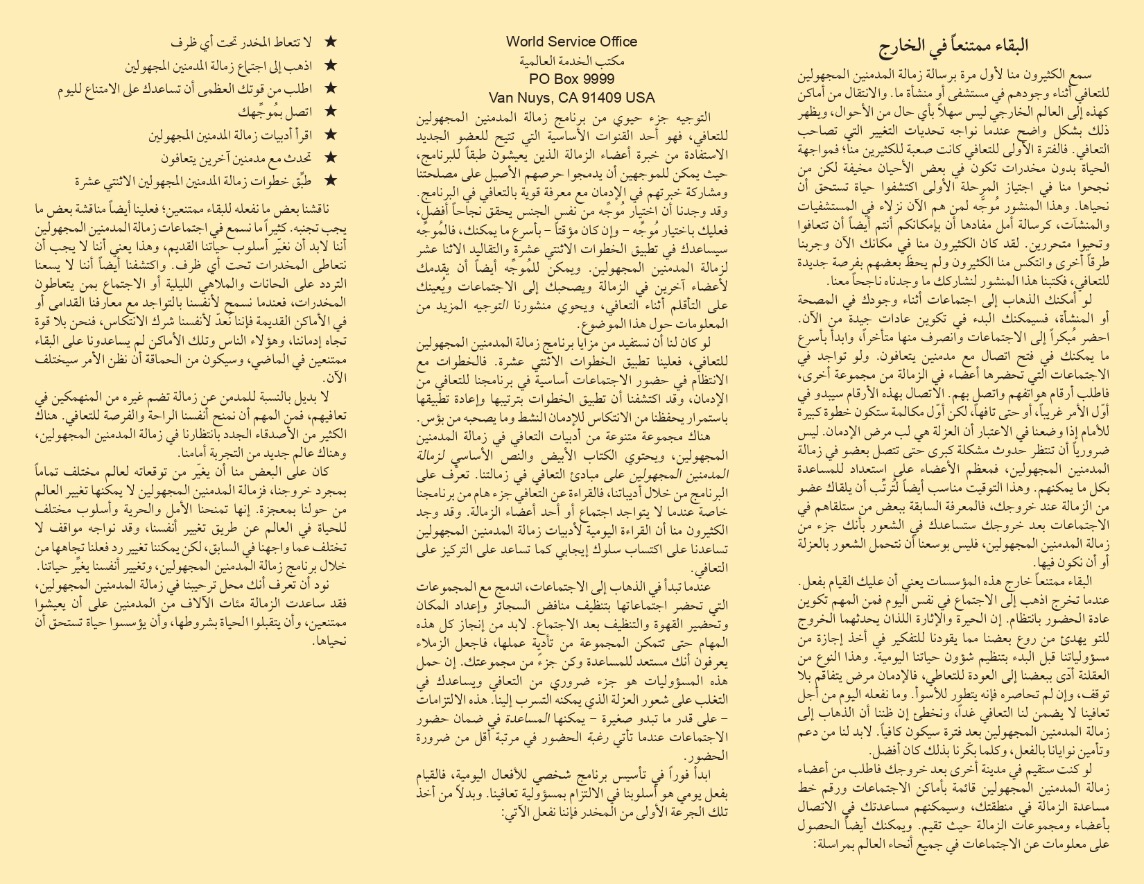 البقاء ممتنعاً في الخارج
سمع الكثيرون منا لأول مرة برسالة زمالة المدمنين المجهولين
للتعافي أثناء وجودهم في مستشفى أو منشأة ما. والانتقال من أماكن
كهذه إلى العالم الخارجي ليس سهلاً بأي حال من الأحوال، ويظهر
ذلك بشكل واضح عندما نواجه تحديات التغيير التي تصاحب
التعافي. فالفترة الأولى للتعافي كانت صعبة للكثيرين منا؛ فمواجهة
الحياة بدون مخدرات تكون في بعض الأحيان مخيفة لكن من
نجحوا منا في اجتياز المرحلة الأولى اكتشفوا حياة تستحق أن
نحياها. وهذا المنشور مُوجّه لمن هم الآن نزلاء في المستشفيات
والمنشآت، كرسالة أمل مفادها أن بإمكانكم أنتم أيضاً أن تتعافوا
وتحيوا متحررين. لقد كان الكثيرون منا في مكانك الآن وجربنا
طرقاً أخرى وانتكس منا الكثيرون ولم يحظَ بعضهم بفرصة جديدة
للتعافي، فكتبنا هذا المنشور لنشاركك ما وجدناه ناجحاً معنا.
لو أمكنك الذهاب إلى اجتماعات أثناء وجودك في المصحة
أو المنشأة، فسيمكنك البدء في تكوين عادات جيدة من الآن.
احضر مُبكراً إلى الاجتماعات وانصرف منها متأخراً، وابدأ بأسرع
ما يمكنك في فتح اتصال مع مدمنين يتعافون. ولو تواجد في
الاجتماعات التي تحضرها أعضاء في الزمالة من مجموعة أخرى،
فاطلب أرقام هواتفهم واتصل بهم. الاتصال بهذه الأرقام سيبدو في
أوّل الأمر غريباً، أو حتى تافهاً، لكن أوّل مكالمة ستكون خطوة كبيرة
للأمام إذا وضعنا في الاعتبار أن العزلة هي لب مرض الإدمان. ليس
ضرورياً أن تنتظر حدوث مشكلة كبرى حتى تتصل بعضو في زمالة
المدمنين المجهولين، فمعظم الأعضاء على استعداد للمساعدة
بكل ما يمكنهم. وهذا التوقيت مناسب أيضاً لتُرتّب أن يلقاك عضو
من الزمالة عند خروجك، فالمعرفة السابقة ببعض من ستلقاهم في
الاجتماعات بعد خروجك ستساعدك في الشعور بأنك جزء من
زمالة المدمنين المجهولين، فليس بوسعنا أن نتحمل الشعور بالعزلة
أو أن نكون فيها.
البقاء ممتنعاً خارج هذه المؤسسات يعني أن عليك القيام بفعل.
عندما تخرج اذهب إلى الاجتماع في نفس اليوم فمن المهم تكوين
عادة الحضور بانتظام. إن الحيرة والإثارة اللذان يحدثهما الخروج
للتو يهدئ من روع بعضنا مما يقودنا للتفكير في أخذ إجازة من
مسؤولياتنا قبل البدء بتنظيم شؤون حياتنا اليومية. وهذا النوع من
العقلنة أدّى ببعضنا إلى العودة للتعاطي، فالإدمان مرض يتفاقم بلا
توقف، وإن لم تحاصره فإنه يتطور للأسوأ. وما نفعله اليوم من أجل
تعافينا لا يضمن لنا التعافي غداً، ونخطئ إن ظننا أن الذهاب إلى
زمالة المدمنين المجهولين بعد فترة سيكون كافياً. لابد لنا من دعم
وتأمين نوايانا بالفعل، وكلما بكّرنا بذلك كان أفضل.
لو كنت ستقيم في مدينة أخرى بعد خروجك فاطلب من أعضاء
زمالة المدمنين المجهولين قائمة بأماكن الاجتماعات ورقم خط
مساعدة الزمالة في منطقتك، وسيمكنهم مساعدتك في الاتصال
بأعضاء ومجموعات الزمالة حيث تقيم. ويمكنك أيضاً الحصول
على معلومات عن الاجتماعات في جميع أنحاء العالم بمراسلة:
World Service Office
مكتب الخدمة العالمية
PO Box 9999
Van Nuys, CA 91409 USA
التوجيه جزء حيوي من برنامج زمالة المدمنين المجهولين
للتعافي، فهو أحد القنوات الأساسية التي تتيح للعضو الجديد
الاستفادة من خبرة أعضاء الزمالة الذين يعيشون طبقاً للبرنامج،
حيث يمكن للموجهين أن يدمجوا حرصهم الأصيل على مصلحتنا
ومشاركة خبرتهم في الإدمان مع معرفة قوية بالتعافي في البرنامج.
وقد وجدنا أن اختيار مُوجّه من نفس الجنس يحقق نجاحاً أفضل،
فعليك باختيار مُوجّه – وإن كان مؤقتاً – بأسرع ما يمكنك، فالمُوجّه
سيساعدك في تطبيق الخطوات الاثنتي عشرة والتقاليد الاثنا عشر
لزمالة المدمنين المجهولين. ويمكن للمُوجّه أيضاً أن يقدمك
لأعضاء آخرين في الزمالة ويصحبك إلى الاجتماعات ويُعينك
على التأقلم أثناء التعافي، ويحوي منشورنا التوجيه المزيد من
المعلومات حول هذا الموضوع.
لو كان لنا أن نستفيد من مزايا برنامج زمالة المدمنين المجهولين
للتعافي، فعلينا تطبيق الخطوات الاثنتي عشرة. فالخطوات مع
الانتظام في حضور الاجتماعات أساسية في برنامجنا للتعافي من
الإدمان، وقد اكتشفنا أن تطبيق الخطوات بترتيبها وإعادة تطبيقها
باستمرار يحفظنا من الانتكاس للإدمان النشط وما يصحبه من بؤس.
هناك مجموعة متنوعة من أدبيات التعافي في زمالة المدمنين
المجهولين، ويحتوي الكتاب الأبيض والنص الأساسي لزمالة
المدمنين المجهولين على مبادئ التعافي في زمالتنا. تعرف على
البرنامج من خلال أدبياتنا، فالقراءة عن التعافي جزء هام من برنامجنا
خاصة عندما لا يتواجد اجتماع أو أحد أعضاء الزمالة. وقد وجد
الكثيرون منا أن القراءة اليومية لأدبيات زمالة المدمنين المجهولين
تساعدنا على اكتساب سلوك إيجابي كما تساعد على التركيز على
التعافي.
عندما تبدأ في الذهاب إلى الاجتماعات، اندمج مع المجموعات
التي تحضر اجتماعاتها بتنظيف منافض السجائر وإعداد المكان
وتحضير القهوة والتنظيف بعد الاجتماع. لابد من إنجاز كل هذه
المهام حتى تتمكن المجموعة من تأدية عملها، فاجعل الزملاء
يعرفون أنك مستعد للمساعدة وكن جزءً من مجموعتك. إن حمل
هذه المسؤوليات هو جزء ضروري من التعافي ويساعدك في
التغلب على شعور العزلة الذي يمكنه التسرب إلينا. هذه الالتزامات
– على قدر ما تبدو صغيرة – يمكنها المساعدة في ضمان حضور
الاجتماعات عندما تأتي رغبة الحضور في مرتبة أقل من ضرورة
الحضور.
ابدأ فوراً في تأسيس برنامج شخصي للأفعال اليومية، فالقيام
بفعل يومي هو أسلوبنا في الالتزام بمسؤولية تعافينا. وبدلاً من أخذ
تلك الجرعة الأولى من المخدر فإننا نفعل الآتي:
★ لا تتعاط المخدر تحت أي ظرف
★ اذهب إلى اجتماع زمالة المدمنين المجهولين
★ اطلب من قوتك العظمى أن تساعدك على الامتناع لليوم
★ اتصل بمُوجّهك
★ اقرأ أدبيات زمالة المدمنين المجهولين
★ تحدث مع مدمنين آخرين يتعافون
★ طبِّق خطوات زمالة المدمنين المجهولين الاثنتي عشرة
ناقشنا بعض ما نفعله للبقاء ممتنعين؛ فعلينا أيضاً مناقشة بعض ما
يجب تجنبه. كثيراً ما نسمع في اجتماعات زمالة المدمنين المجهولين
أننا لابد أن نغيّر أسلوب حياتنا القديم، وهذا يعني أننا لا يجب أن
نتعاطى المخدرات تحت أي ظرف. واكتشفنا أيضاً أننا لا يسعنا
التردد على الحانات والملاهي الليلية أو الاجتماع بمن يتعاطون
المخدرات، فعندما نسمح لأنفسنا بالتواجد مع معارفنا القدامى أو
في الأماكن القديمة فإننا نُعدّ لأنفسنا شرك الانتكاس، فنحن بلا قوة
تجاه إدماننا، وهؤلاء الناس وتلك الأماكن لم يساعدونا على البقاء
ممتنعين في الماضي، وسيكون من الحماقة أن نظن الأمر سيختلف
الآن.
لا بديل بالنسبة للمدمن عن زمالة تضم غيره من المنهمكين في
تعافيهم، فمن المهم أن نمنح أنفسنا الراحة والفرصة للتعافي. هناك
الكثير من الأصدقاء الجدد بانتظارنا في زمالة المدمنين المجهولين،
وهناك عالم جديد من التجربة أمامنا.
كان على البعض منا أن يغيّر من توقعاته لعالم مختلف تماماً
بمجرد خروجنا، فزمالة المدمنين المجهولين لا يمكنها تغيير العالم
من حولنا بمعجزة. إنها تمنحنا الأمل والحرية وأسلوب مختلف
للحياة في العالم عن طريق تغيير أنفسنا، وقد نواجه مواقف لا
تختلف عما واجهنا في السابق، لكن يمكننا تغيير رد فعلنا تجاهها من
خلال برنامج زمالة المدمنين المجهولين، وتغيير أنفسنا يغيّر حياتنا.
نود أن تعرف أنك محل ترحيبنا في زمالة المدمنين المجهولين،
فقد ساعدت الزمالة مئات الآلاف من المدمنين على أن يعيشوا
ممتنعين، وأن يتقبلوا الحياة بشروطها، وأن يؤسسوا حياة تستحق أن
نحياها.